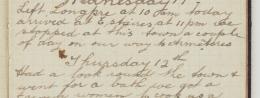 Left Longpre at 10 am today
arrived at Estaires at 11 pm we
stopped at this town a couple
of day on our way to Armitires
Thursday 12th
Had a look round the town &
went for a bath we got a